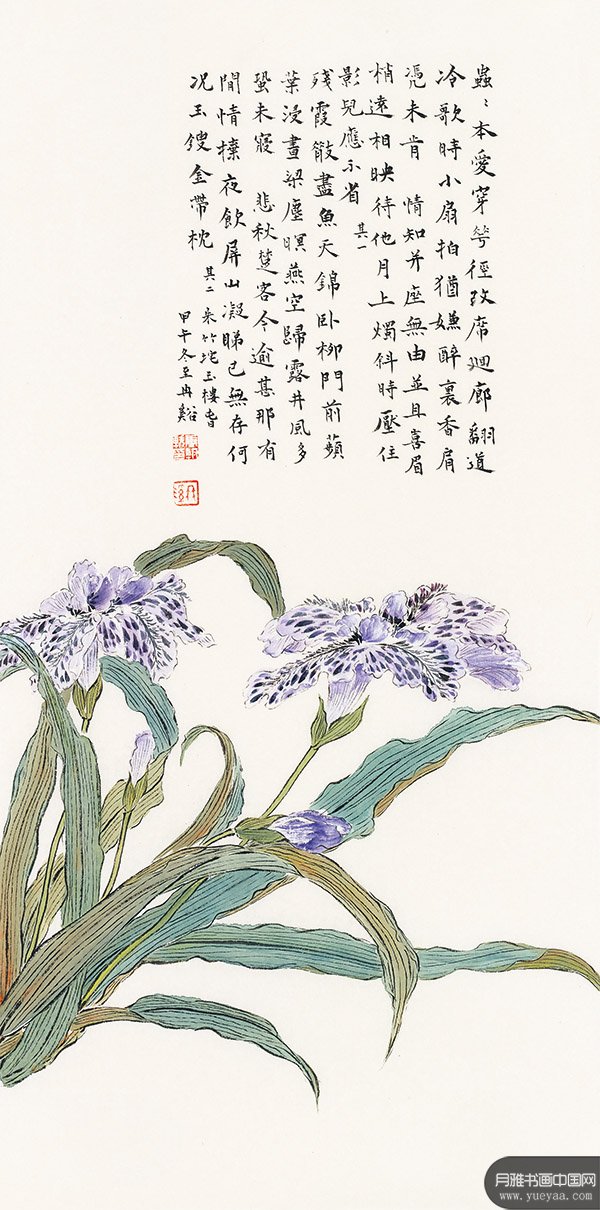 蟲〻本愛穿花徑改席迴廊翻道
冷歌時小扇拍猶嫌醉裏香肩
凭未肯 情知并座無由並且喜眉
梢遠相映待他月上燭斜時壓住
影兒應不省 其一
残霞散盡魚天錦卧柳門前蘋
葉浸畫梁塵暝燕空歸露井風多
蛩未寢 悲秋楚客今逾甚那有
閒情夜飲屏山凝睇已無存何
况玉鎪金帶枕 其二 朱竹垞玉樓春
甲午冬至冉谿
月雅书画中国网
www.yueyaa.com